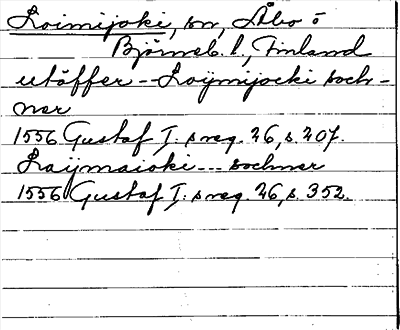 Loimijoki, sn, Åbo o
Björneb. l., Finland
utöffer -- Loÿmijocki soch-
ner
1556 Gustaf I:s reg. 26, s. 207.
Laÿmaioki --- sochner
1556 Gustaf I:s reg. 26, s. 352.